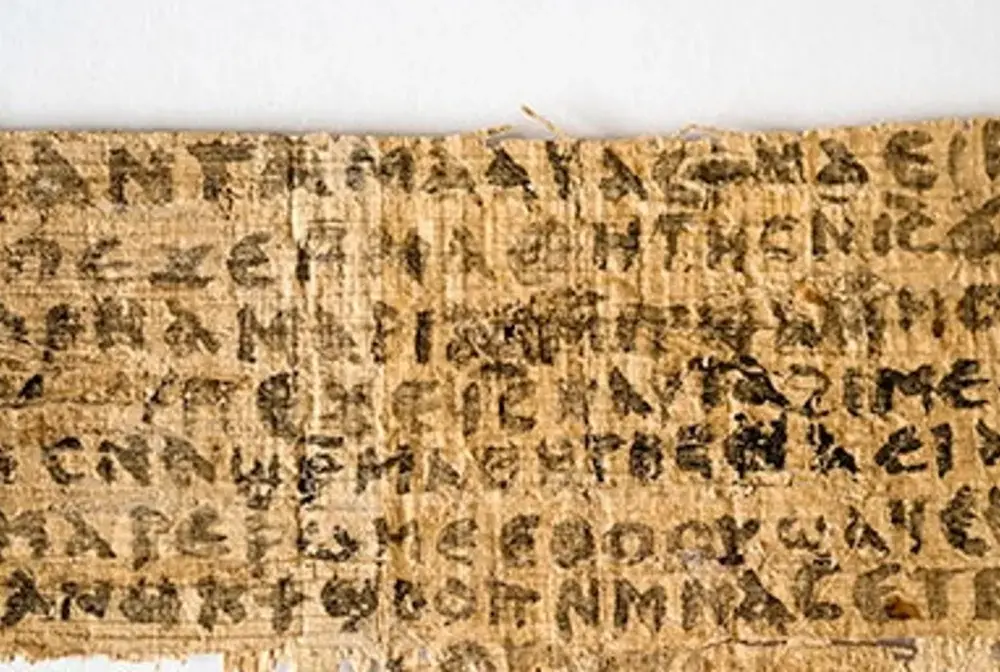 ⲁⲛ ⲧⲁⲙⲁⲁⲩ ⲁⲥϯⲛⲁⲉⲓ
ⲡⲉϫⲉ ⲙⲙⲁⲑⲏⲧⲏⲥ ⲛⲓ̅ⲥ̅
ⲁⲣⲛⲁ ⲙⲁⲣⲓⲁⲙ
ⲡⲉϫⲉ ⲓ̅ⲥ̅ ⲛⲁⲩ ⲧⲁϩⲓⲙⲉ
ⲥⲛⲁϣⲣⲙⲁⲑⲏⲧⲏⲥ ⲛⲁⲉⲓ
ⲙⲁⲣⲉⲣⲱⲙⲉ ⲉⲑⲟⲟⲩ ϣⲁϥⲉ
ⲁⲛⲟⲕ ϯϣⲟⲟⲡ ⲛⲙⲙⲁⲥ ⲉⲧⲃ